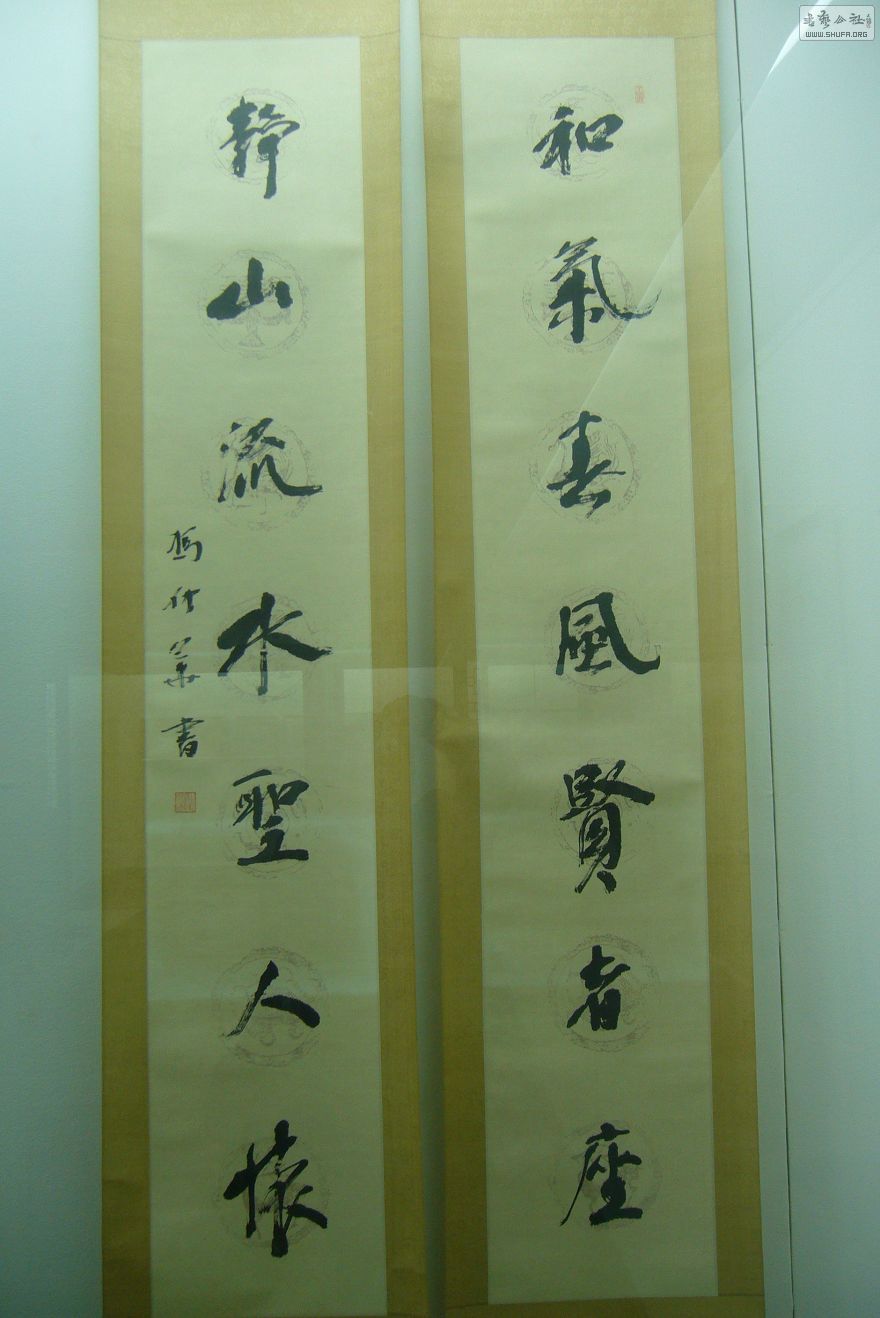 和氣春風賢者座
靜山流水聖人懷
書
書藝公社
WWW.SHUFA.ORG